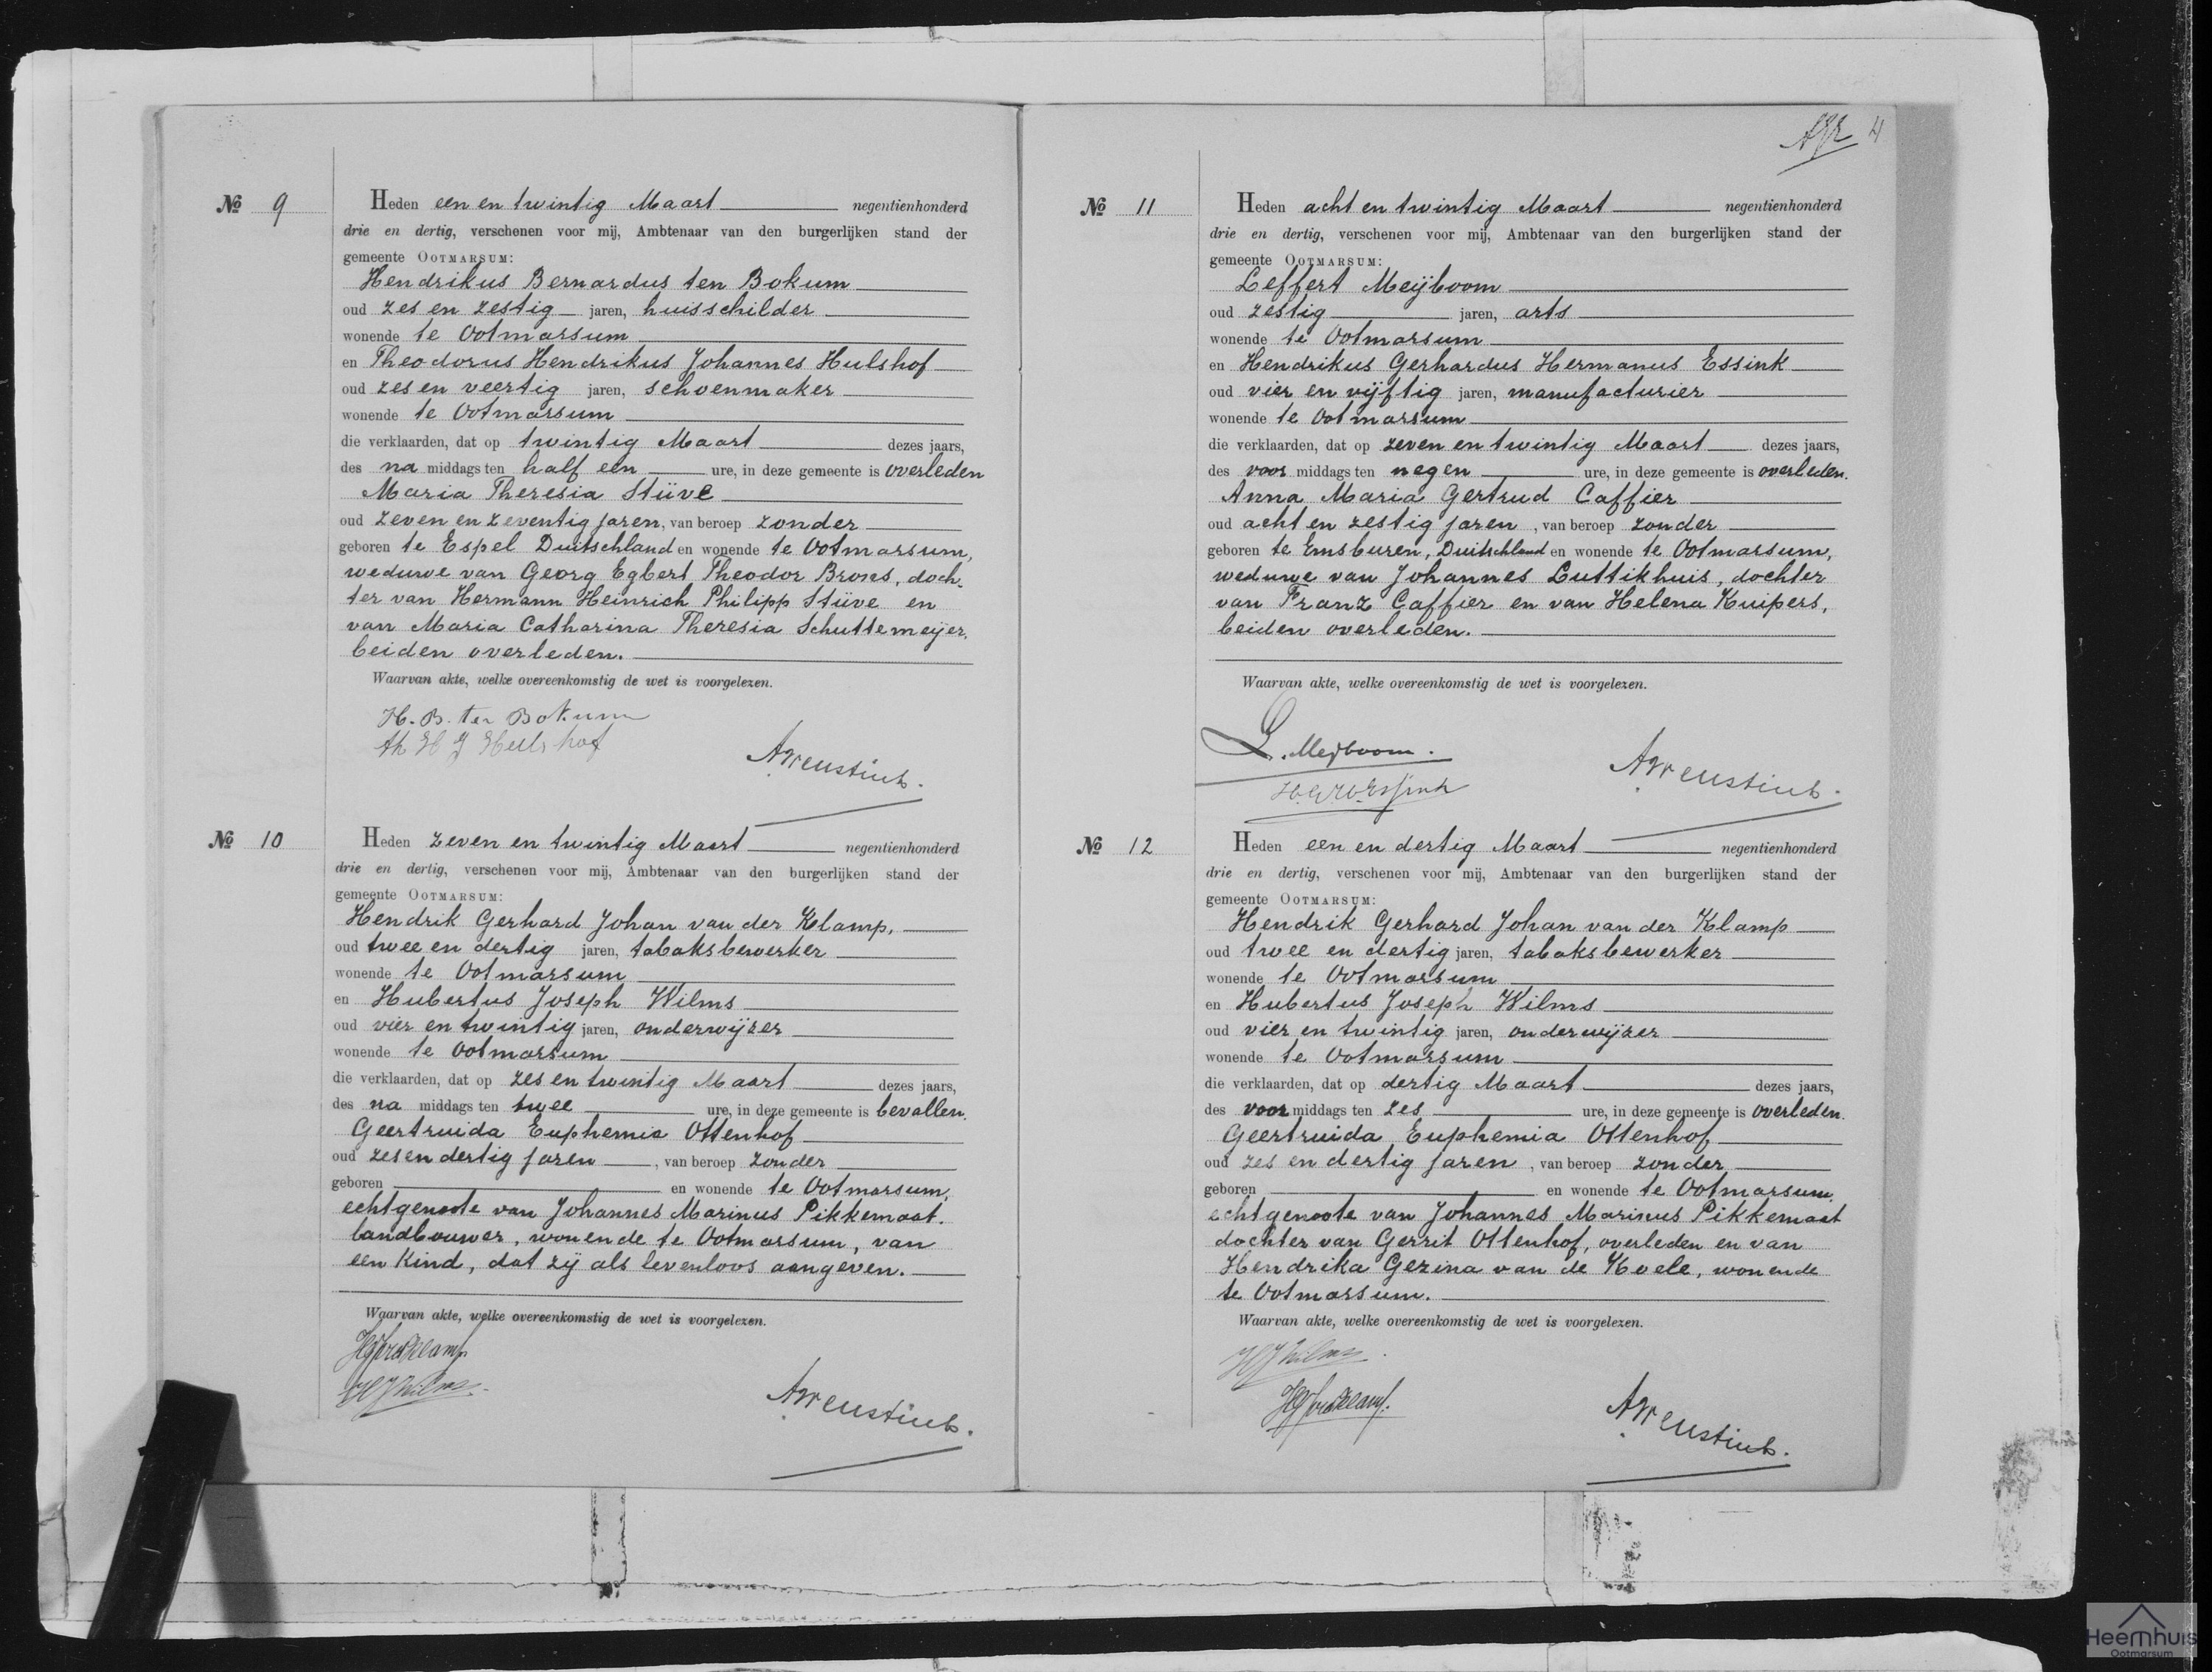 № 9
Heden een en twintig Maart negentienhonderd
drie en dertig, verschenen voor mij, Ambtenaar van den burgerlijken stand der
gemeente OOTMARSUM:
Hendrikus Bernardus ten Bokum
oud zes en zestig jaren, huisschilder
wonende te Ootmarsum
en Theodorus Hendrikus Johannes Hulshof
oud zes en veertig jaren, schoenmaker
wonende te Ootmarsum
die verklaarden, dat op twintig Maart dezes jaars,
des na middags ten half een ure, in deze gemeente is overleden
Maria Theresia Stüve
oud zeven en zeventig jaren, van beroep zonder
geboren te Espel Duitschland en wonende te Ootmarsum,
weduwe van Georg Egbert Theodor Broxes, doch-
ter van Hermann Heinrich Philipp Stüve en
van Maria Catharina Theresia Schuttemeijer,
beiden overleden.
Waarvan akte, welke overeenkomstig de wet is voorgelezen.
H. B. ten Bokum
Th H J Hulshof
№ 10
Heden zeven en twintig Maart negentienhonderd
drie en dertig, verschenen voor mij, Ambtenaar van den burgerlijken stand der
gemeente OOTMARSUM:
Hendrik Gerhard Johan van der Klamp,
oud twee en dertig jaren, tabaksbewerker
wonende te Ootmarsum
en Hubertus Joseph Wilms
oud vier en twintig jaren, onderwijzer
wonende te Ootmarsum
die verklaarden, dat op zes en twintig Maart dezes jaars,
des na middags ten twee ure, in deze gemeente is bevallen.
Geertruida Euphemia Ottenhof
oud zes en dertig jaren, van beroep zonder
geboren en wonende te Ootmarsum,
echtgenoote van Johannes Marinus Pikkemaat.
landbouwer, wonende te Ootmarsum, van
een kind, dat zij als levenloos aangeven.
Waarvan akte, welke overeenkomstig de wet is voorgelezen.
HGJvdKlamp
HJWilms.
4
№ 11
Heden acht en twintig Maart negentienhonderd
drie en dertig, verschenen voor mij, Ambtenaar van den burgerlijken stand der
gemeente OOTMARSUM:
Leffert Meijboom
oud zestig jaren, arts
wonende te Ootmarsum
en Hendrikus Gerhardus Hermanus Essink
oud vier en vijftig jaren, manufacturier
wonende te Ootmarsum
die verklaarden, dat op zeven en twintig Maart dezes jaars,
des voor middags ten negen ure, in deze gemeente is overleden.
Anna Maria Gertrud Caffier
oud acht en zestig jaren, van beroep zonder
geboren te Emsburen, Duitschland en wonende te Ootmarsum,
weduwe van Johannes Luttikhuis, dochter
van Franz Caffier en van Helena Kuipers,
beiden overleden.
Waarvan akte, welke overeenkomstig de wet is voorgelezen.
L. Meijboom.
H.G.H.Essink
№ 12
Heden een en dertig Maart negentienhonderd
drie en dertig, verschenen voor mij, Ambtenaar van den burgerlijken stand der
gemeente OOTMARSUM:
Hendrik Gerhard Johan van der Klamp
oud twee en dertig jaren, tabaksbewerker
wonende te Ootmarsum
en Hubertus Joseph Wilms
oud vier en twintig jaren, onderwijzer
wonende te Ootmarsum
die verklaarden, dat op dertig Maart dezes jaars,
des voor middags ten zes ure, in deze gemeente is overleden.
Geertruida Euphemia Ottenhof
oud zes en dertig jaren, van beroep zonder
geboren en wonende te Ootmarsum,
echtgenoote van Johannes Marinus Pikkemaat
dochter van Gerrit Ottenhof, overleden en van
Hendrika Gezina van de Koele, wonende
te Ootmarsum.
Waarvan akte, welke overeenkomstig de wet is voorgelezen.
HJWilms.
HGJvdKlamp.
Heemhuis
Ootmarsum